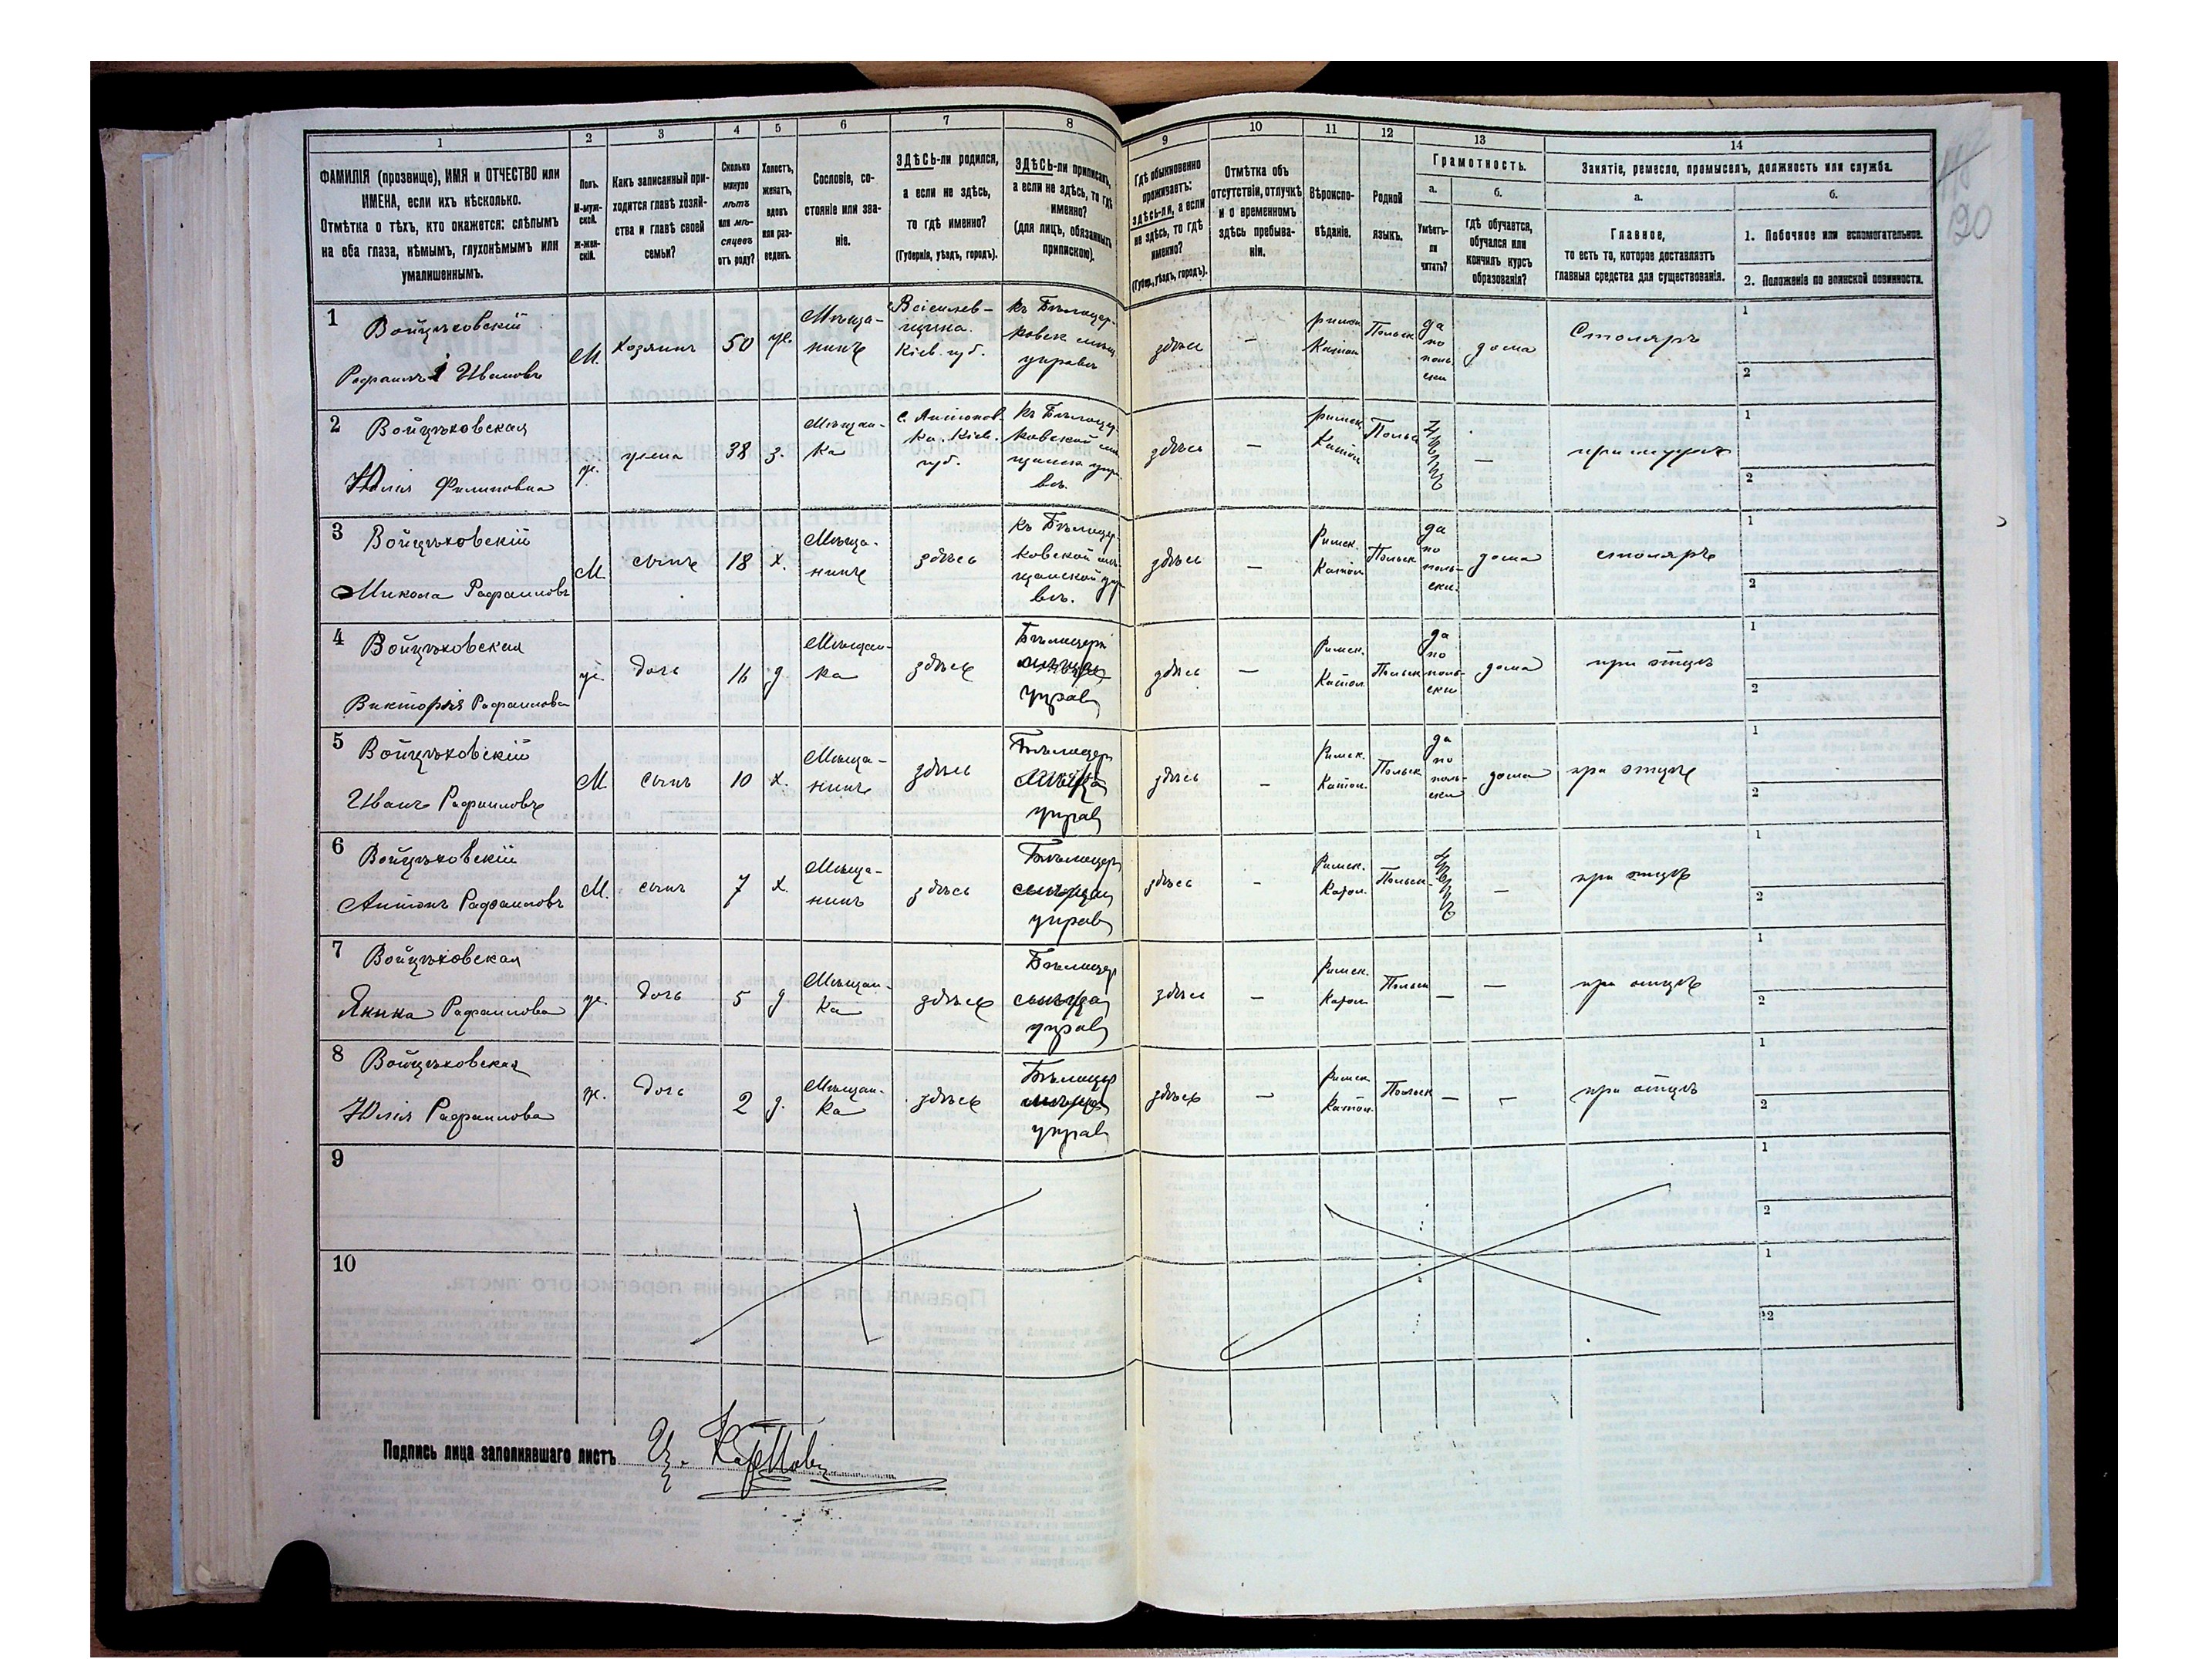 1 2 3 4 5 6 7 8 9 10 11 12 13 14
ФАМИЛІЯ (прозвище), ИМЯ и ОТЧЕСТВО или
ИМЕНА, если ихъ нѣсколько.
Отмѣтка о тѣхъ, кто окажется: слѣпымъ
на оба глаза, нѣмымъ, глухонѣмымъ или
умалишеннымъ.
Полъ.
М-муж-
ской.
Ж-жен-
скій.
Какъ записанный при-
ходится главѣ хозяй-
ства и главѣ своей
семьи?
Сколько
минуло
лѣтъ
или мѣ-
сяцевъ
отъ роду?
Холостъ,
женатъ,
вдовъ
или раз-
веденъ.
Сословіе, со-
стояніе или зва-
ніе.
ЗДѢСЬ-ли родился,
а если не здѣсь,
то гдѣ именно?
(Губернія, уѣздъ, городъ).
ЗДѢСЬ-ли приписанъ,
а если не здѣсь, то гдѣ
именно?
(для лицъ, обязанныхъ
припискою).
Гдѣ обыкновенно
проживаетъ:
здѣсь-ли, а если
не здѣсь, то гдѣ
именно?
(Губер., уѣздъ, городъ).
Отмѣтка объ
отсутствіи, отлучкѣ
и о временномъ
здѣсь пребыва-
ніи.
Вѣроиспо-
вѣданіе.
Родной
языкъ.
Грамотность.
а.
Умѣетъ-
ли
читать?
б.
гдѣ обучается,
обучался или
кончилъ курсъ
образованія?
Занятіе, ремесло, промыселъ, должность или служба.
а.
Главное,
то есть то, которое доставляетъ
главныя средства для существованія.
б.
1. Побочное или вспомогательное.
2. Положеніе по воинской повинности.
120
1 Войцѣховскій
Рафаилъ Ивановъ
М. хозяинъ 50 ж.
Мѣща-
нинъ
Кіев. губ.
къ Бѣлоцер-
ковск мѣщ.
управѣ
здѣсь –
римск
Катол
Польск
да
по
поль
ски
дома Столяръ
1
2
2 Войцѣховская
Юлія Филиповна
ж. жена 38 з.
Мѣщан-
ка
с. Антонов
ка. Кіев.
губ.
къ Бѣлоцер
ковской мѣ
щанск упра
вѣ.
здѣсь –
римск
Катол
Польск
–
при мужѣ
1
2
3 Войцѣховскій
Микола Рафаиловъ
М. сынъ 18 х.
Мѣща-
нинъ
здѣсь
къ Бѣлоцер
ковской мѣ
щанской упр
вѣ.
здѣсь –
Римск.
Катол
Польск
да
по
поль-
ски.
дома столяръ
1
2
4 Войцѣховская
Викторія Рафаилова
ж. дочь 16 д
Мѣщан-
ка
здѣсь
Бѣлоцерк
управ
здѣсь –
Римск.
Катол
Польск
да
по
поль-
ски
дома при отцѣ
1
2
5 Войцѣховскій
Иванъ Рафаиловъ
М. сынъ 10 х.
Мѣща-
нинъ
здѣсь
Бѣлоцер
мѣща
управ
здѣсь –
Римск.
Катол.
Польск
да
по
поль-
ски
дома при отцѣ
1
2
6 Войцѣховскій
Антонъ Рафаиловъ
М. сынъ 7 х.
Мѣща-
нинъ
здѣсь
Бѣлоцер
управ
здѣсь –
Римск.
Катол.
Польск. –
при отцѣ
1
2
7 Войцѣховская
Янина Рафаилова
ж. дочь 5 д
Мѣщан-
ка
здѣсь
Бѣлоцер
управ
здѣсь –
Римск.
Катол
Польск
– –
при отцѣ
1
2
8 Войцѣховская
Юлія Рафаилова
ж. дочь 2 д.
Мѣщан-
ка
здѣсь
Бѣлоцер
управ
здѣсь –
Римск
Катол.
Польск
– –
при отцѣ
1
2
9
1
2
10
1
2
Подпись лица заполнявшаго листъ